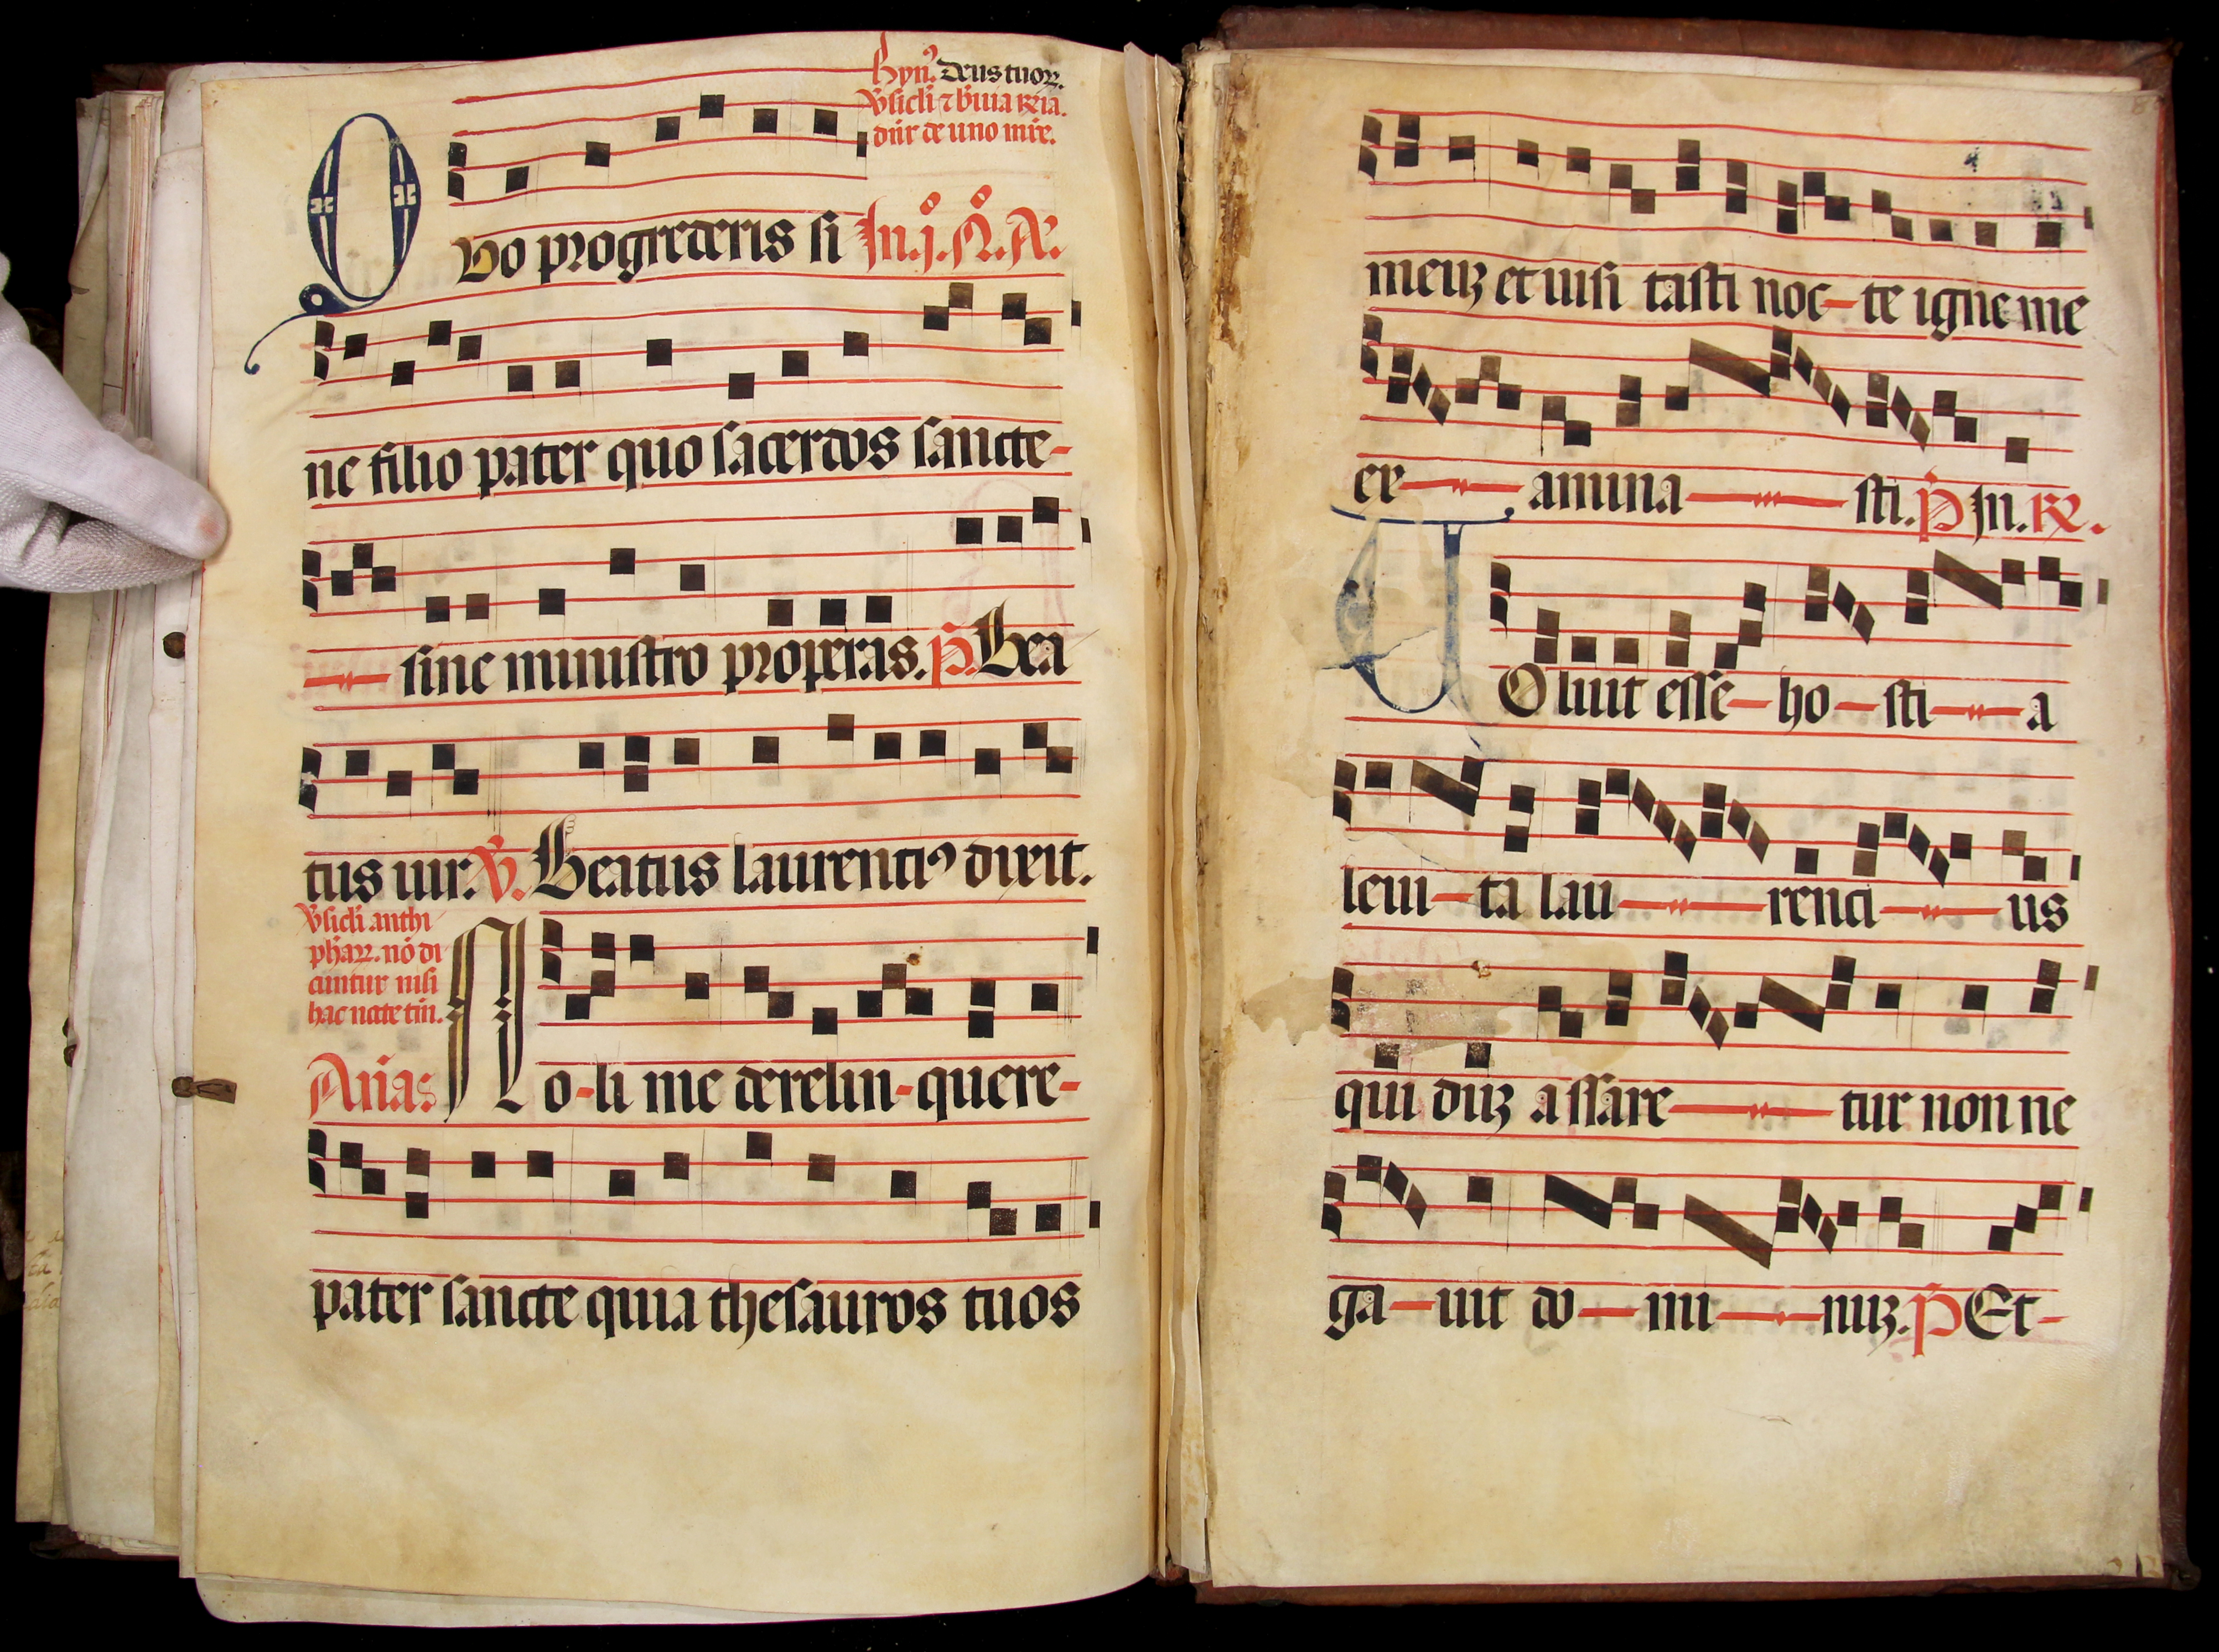 Hyn⁹. Deus tuoꝝ.
v̾sicl̄i ⁊ b̾uia ⁊ c̄ia.
dn̄r de uno mr̄e.
QVo progrederis si In. j°. N°. A͂.
ne filio pater quo sacerdos sancte-
sine ministro properas. p̄. Bea
tus uir. v̄. Beatus laurenti⁹ dixit.
v̾sicl̄i anthi
phaꝝ. nō di
cuntur nisi
hac nocte tm̄.
An̄a:
No-li me derelin-quere-
pater sancte quia thesauros tuos
meuꝫ et uisi tasti noc-te igne me
ex- amina- sti. p̄ In. ℟.
VOluit esse-ho-sti-a
leui-ta lau-renci-us
qui duꝫ assare-tur non ne
ga-uit do-mi-nuꝫ. p̄ Et-